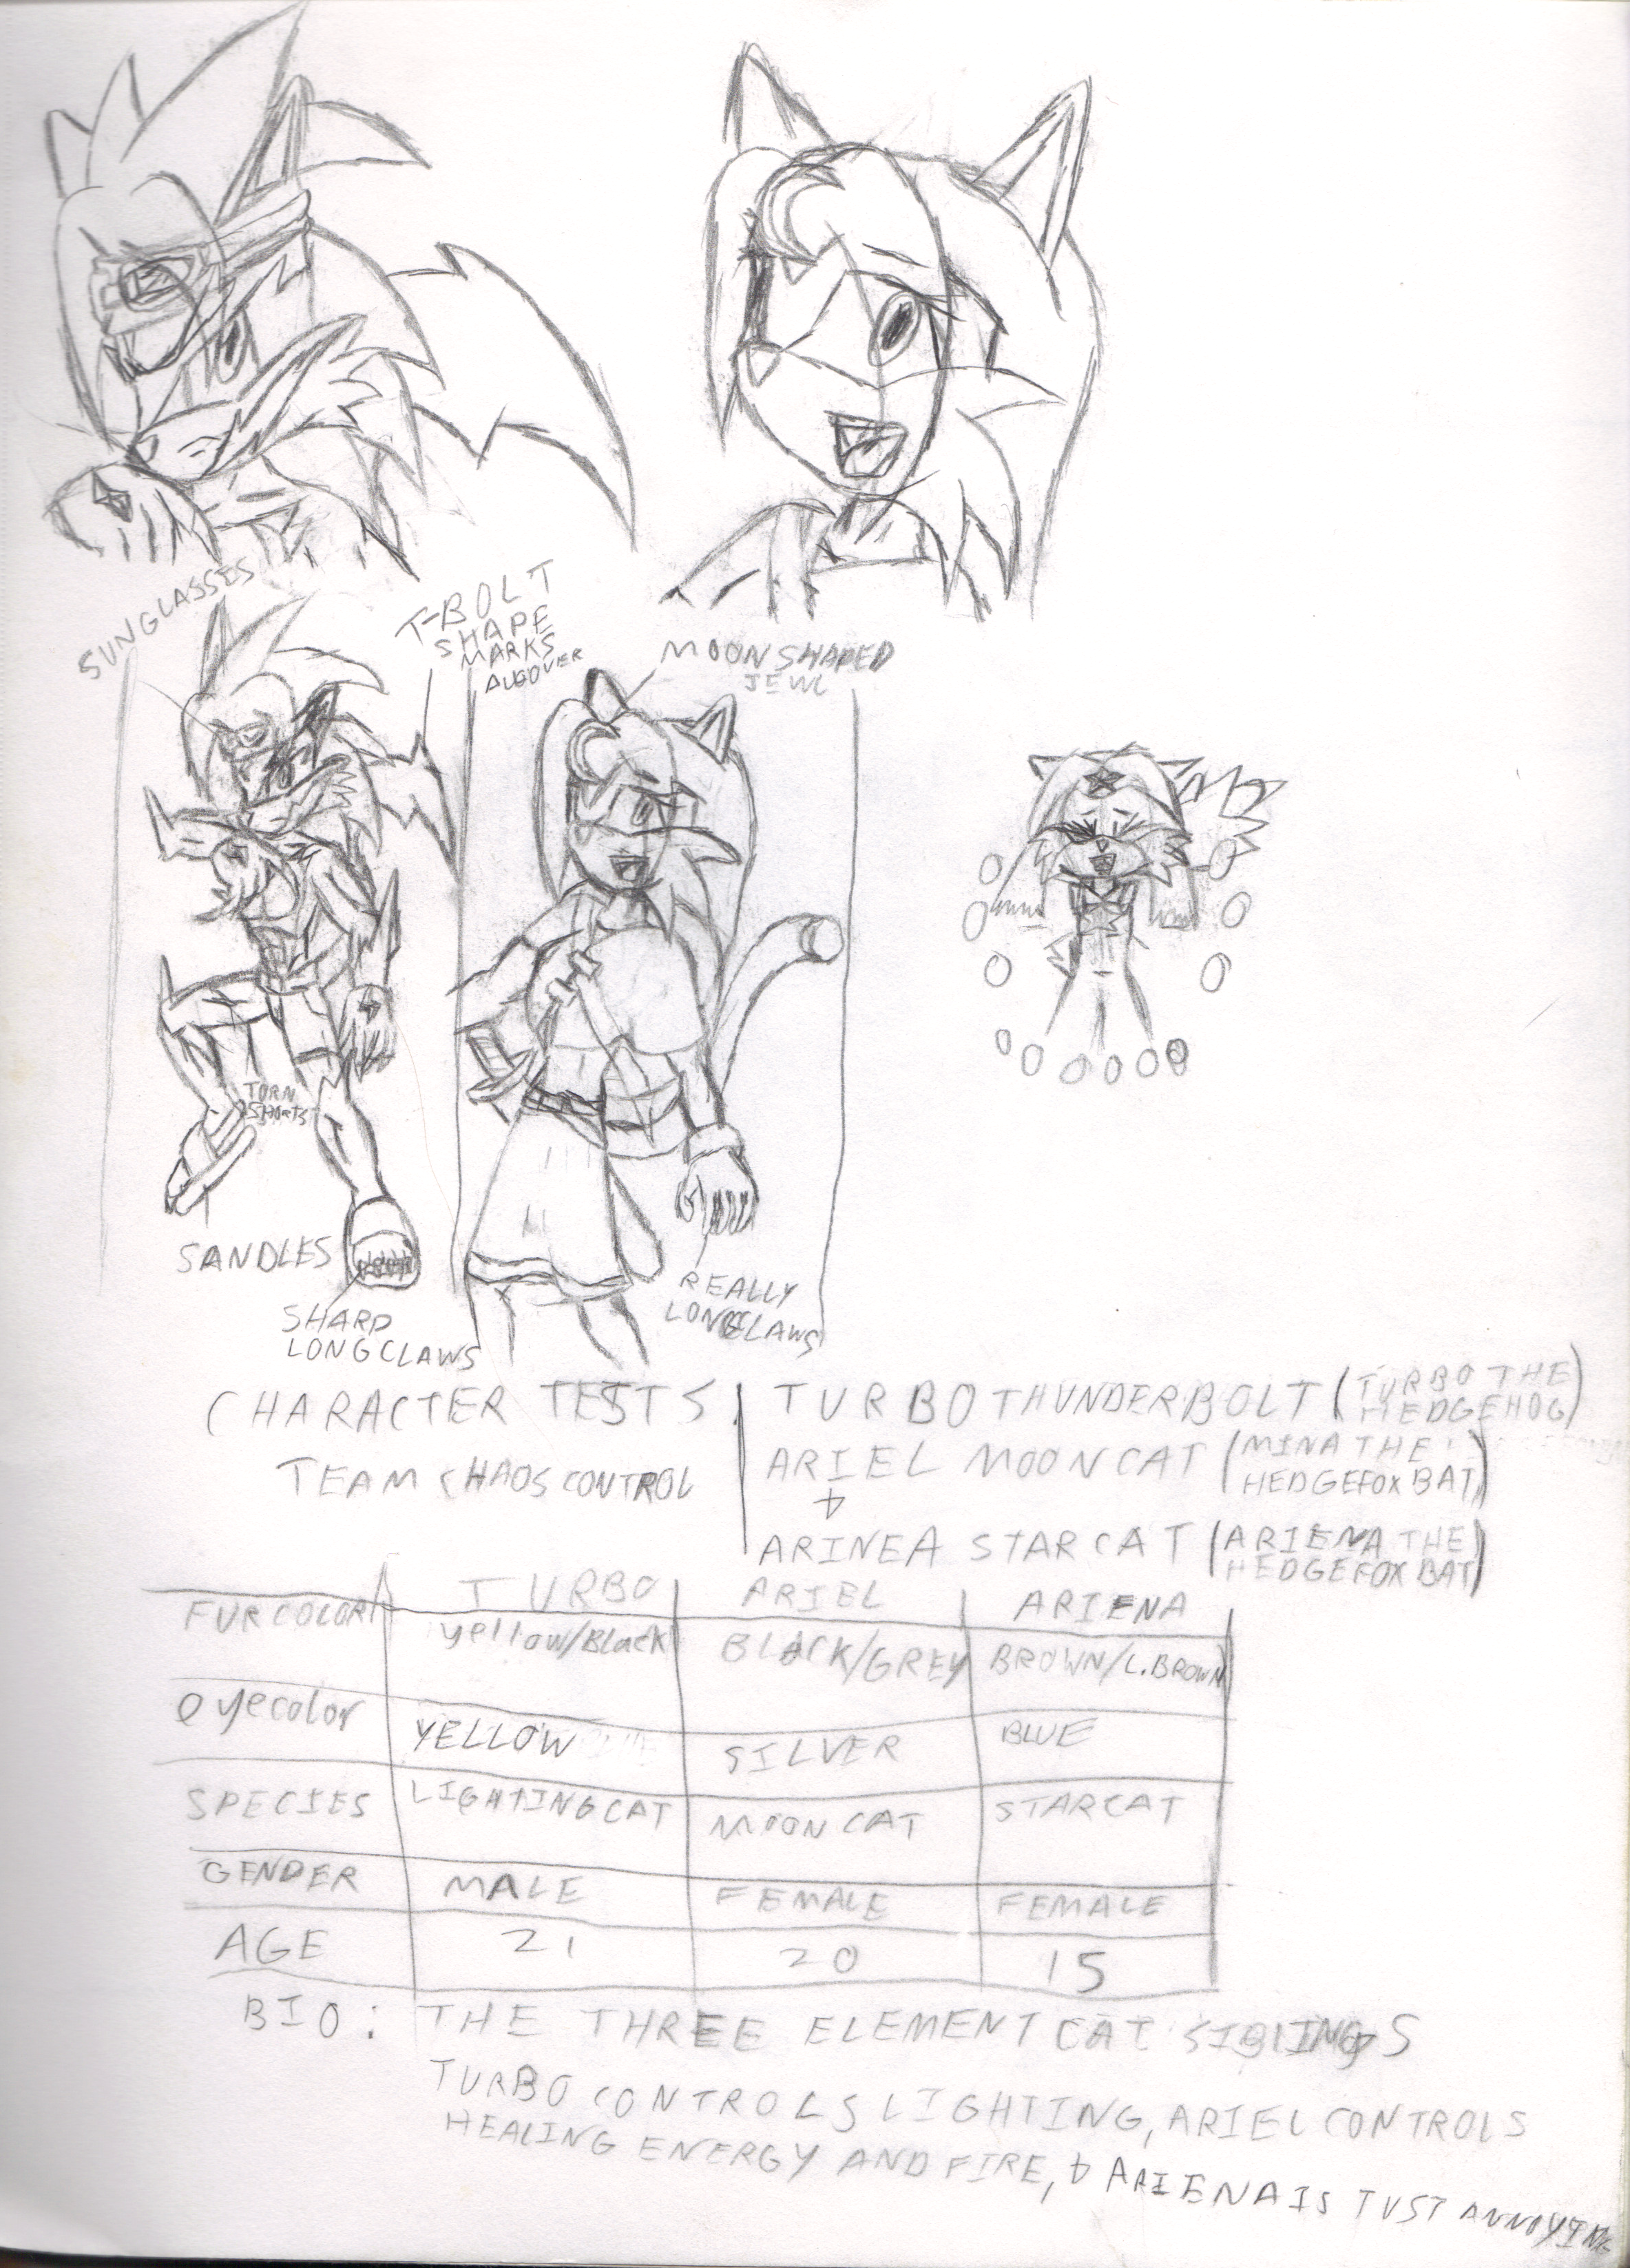 SUNGLASSES
T-BOLT
SHAPE
MARKS
ALLOVER
MOON SHAPED
JEWL
TORN
SHORTS
SANDLES
SHARP
LONG CLAWS
REALLY
LONG CLAWS
CHARACTER TESTS
TEAM CHAOS CONTROL
TURBO THUNDERBOLT (TURBO THE
HEDGEHOG)
ARIEL MOONCAT (MINA THE
HEDGEFOX BAT)
+
ARINEA STARCAT (ARIENA THE
HEDGEFOX BAT)
TURBO ARIEL ARIENA
FUR COLOR yellow/Black BLACK/GREY BROWN/L.BROWN
eyecolor YELLOW SILVER BLUE
SPECIES LIGHTING CAT MOON CAT STARCAT
GENDER MALE FEMALE FEMALE
AGE 21 20 15
BIO: THE THREE ELEMENT CAT SIBLINGS
TURBO CONTROLS LIGHTING, ARIEL CONTROLS
HEALING ENERGY AND FIRE, + ARIENA IS JUST ANNOYING